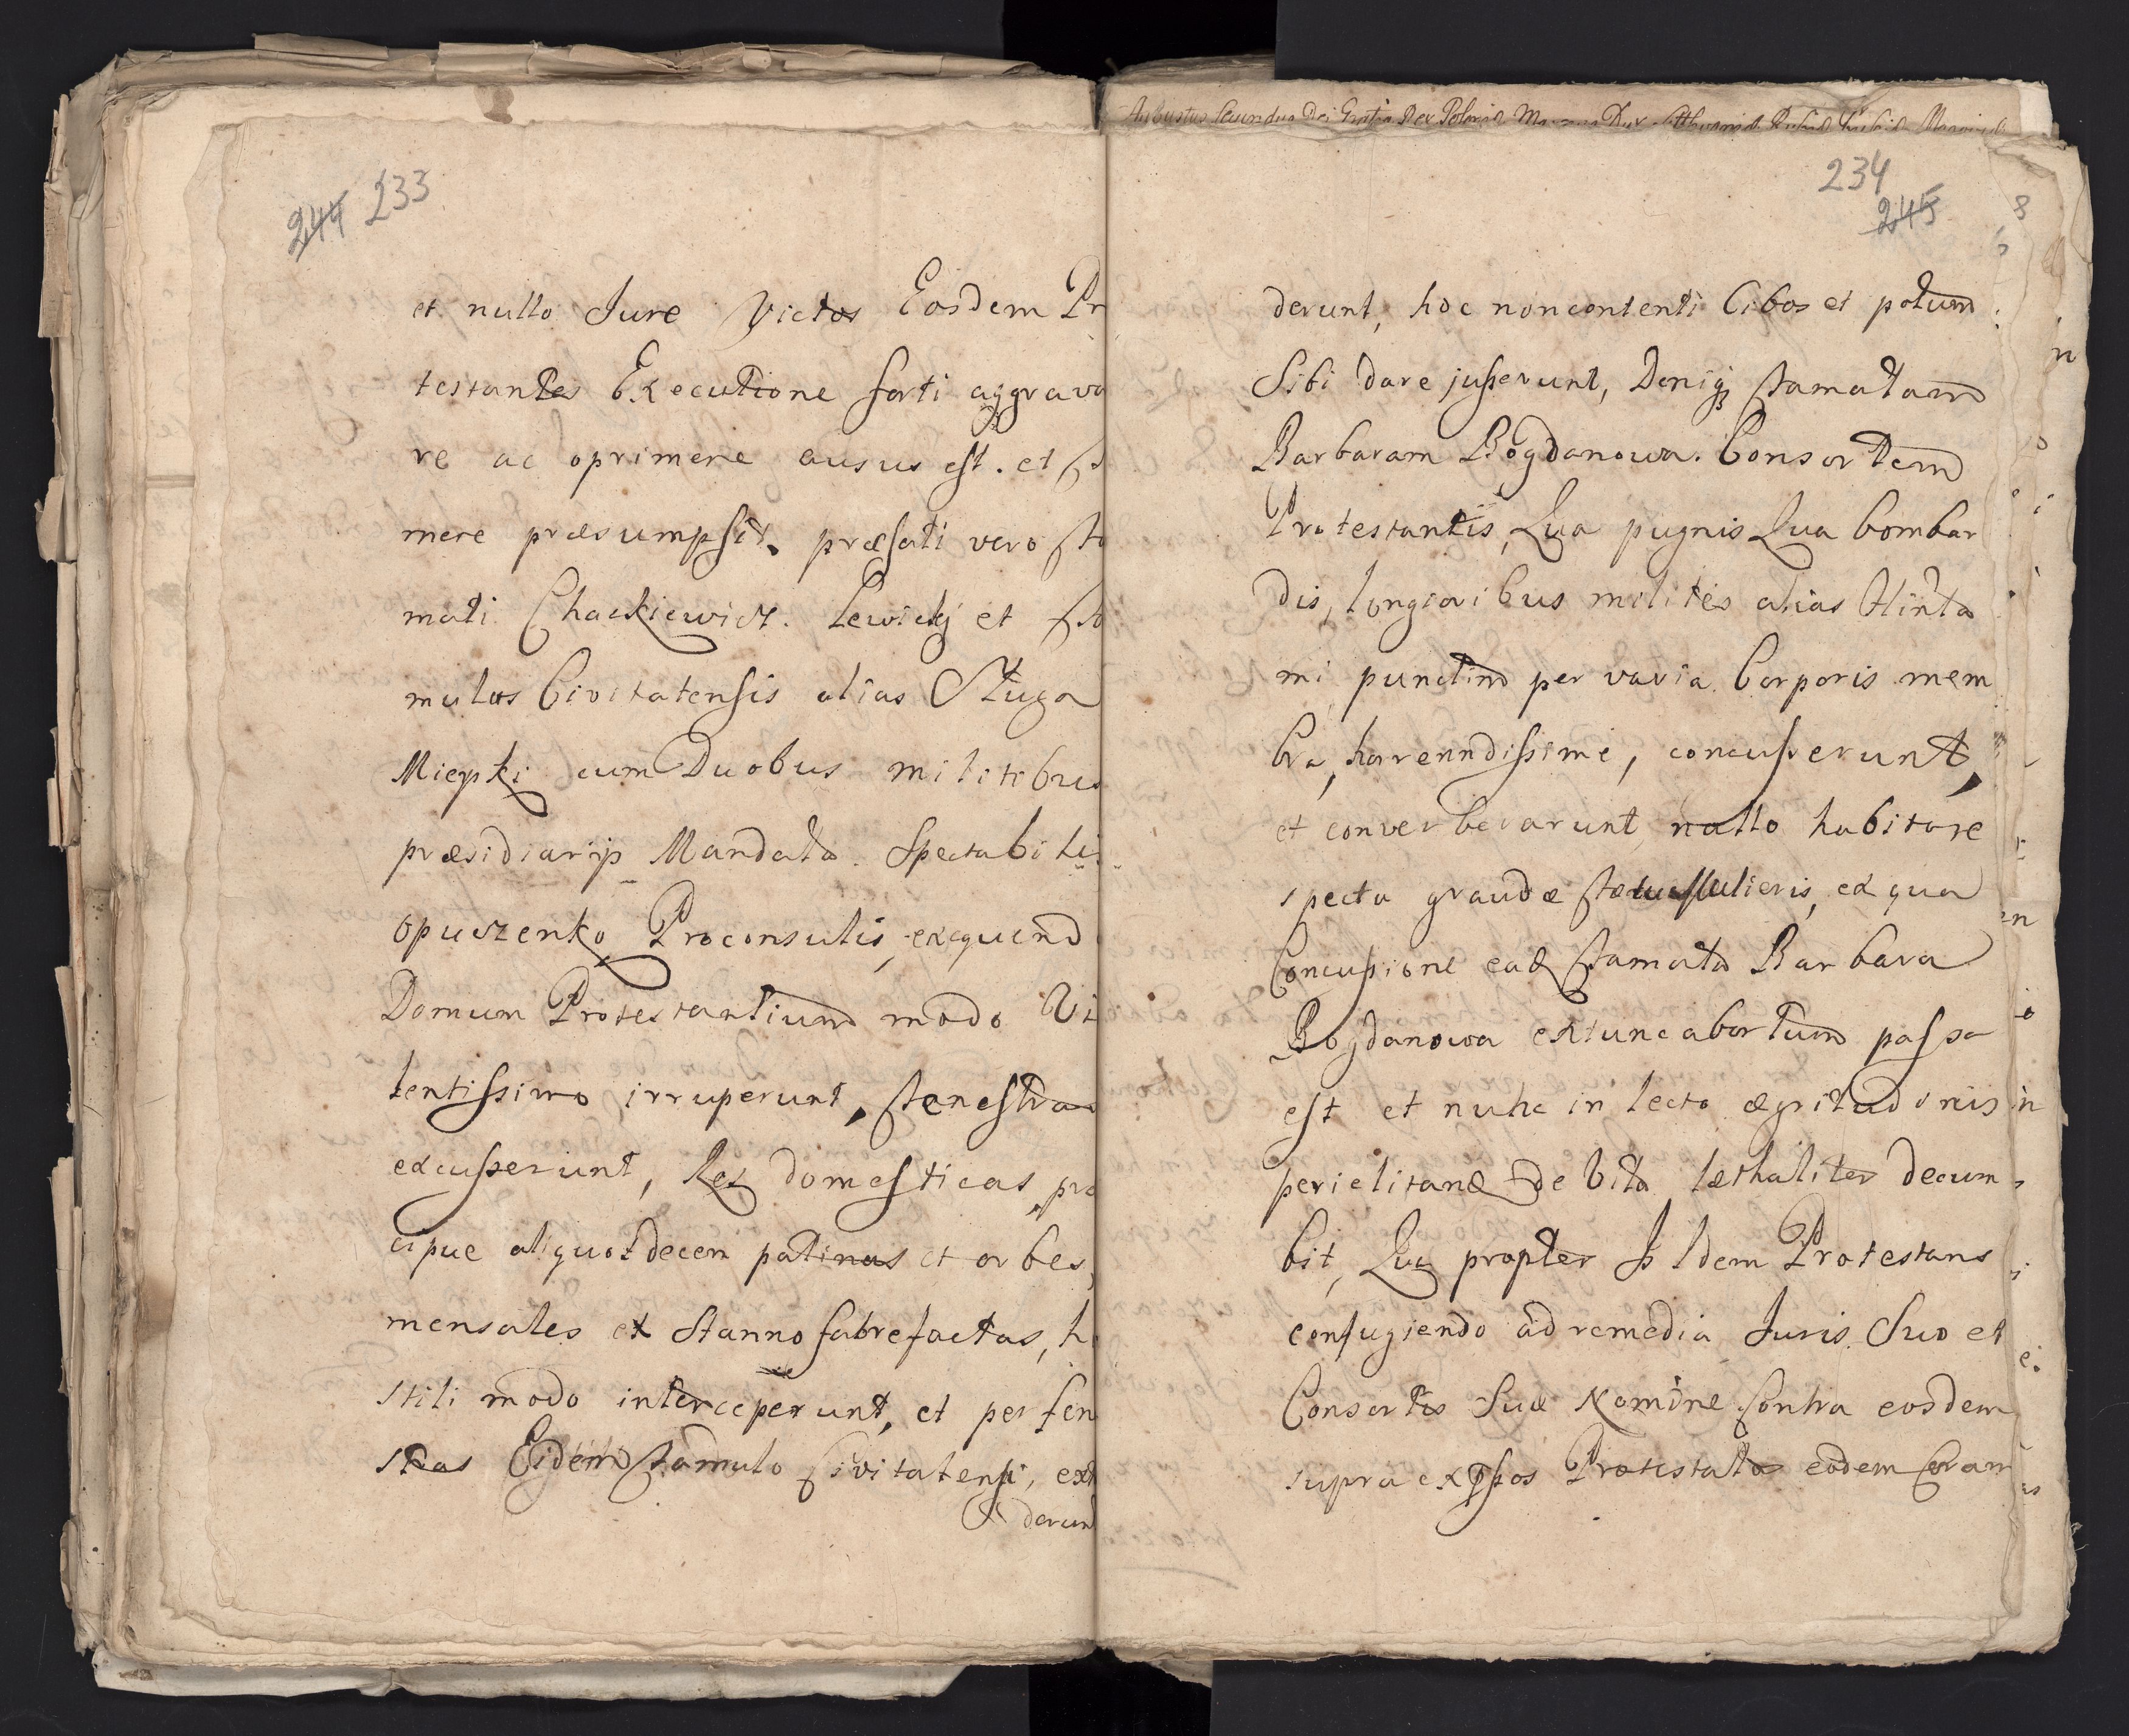 244 233
et nullo Jure Victos Eosdem Pr
testantes Executione forti aggrava
re ac oprimere ausus est. et
mere præsumpsit. præfati vero fa
mati Chackiewicz. Lewickj et fa
mulus Civitatensis alias Sługa
Mieyski cum Duobus militibus
præsidiarijs Mandato. Spectabilis
opuszenko Proconsulis, exequend
Domum Protestantium modo Vi
lentissimo irruperunt, fenestras
excusserunt, Res domesticas, præ
cipue aliquot decem patinas et orbes,
mensales ex Stanno fabrefactas, ho
stili modo interceperunt, et per fen
stras Eidem famulo Civitatensi, ext
derun
Augustus Secundus Dei Gratia Rex Poloniæ Magnus Dux
234
245
8
derunt, hoc non contenti Cibos et potum
Sibi dare jusserunt, Deniq famatam
Barbaram Bogdanowa. Consortem
Protestantis, Qua pugnis Qua bombar
dis, longioribus milites alias flinta
mi punctim per varia. Corporis mem
bra, horenndissime, concusserunt,
et converberarunt, nullo habito re
specta gravidæ fætu Mulieris, ex qua
Concussione ead famata Barbara
Bogdanowa extunc abortum passa
est et nunc in lecto ægritudinis
periclitand de Vita læthaliter decum
bit, Qua propter Is Idem Protestans
confugiendo ad remedia Juris. Suo et
Consortis Suæ Nomine Contra eosdem
supra expssos Protestats eodem Coram